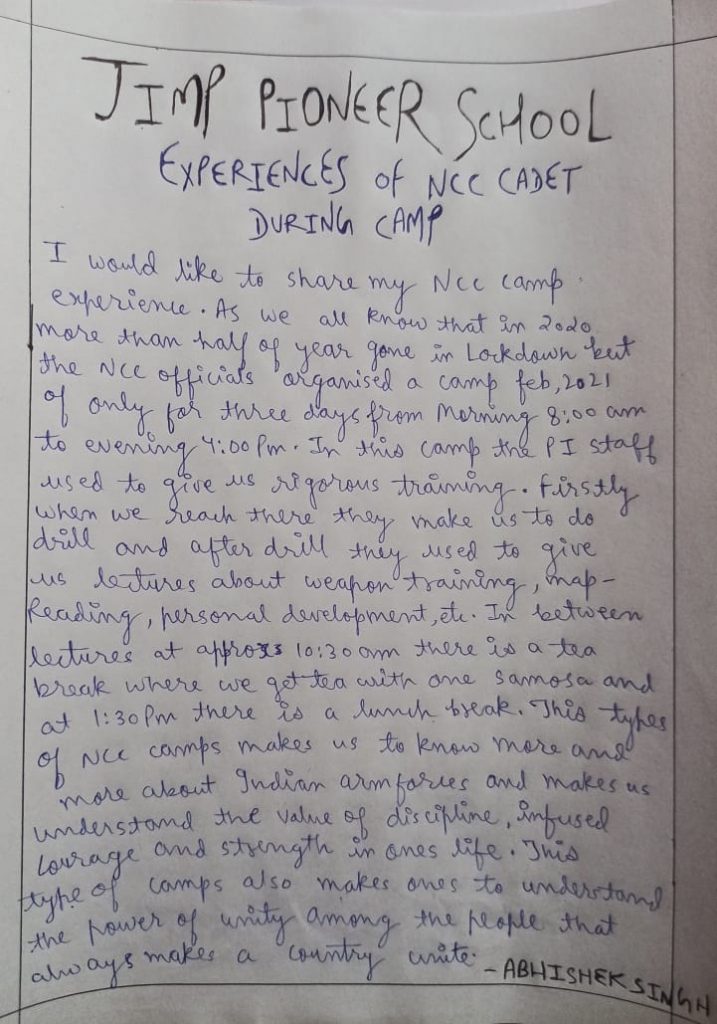 JIMP PIONEER SCHOOL
EXPERIENCES of NCC CADET
DURING CAMP
I would like to share my Ncc camp
experience. As we all know that in 2020
more than half of year gone in Lockdown but
the NCC officials organised a camp feb, 2021
of only for three days from Morning 8:00 am
to evening 4:00 Pm. In this camp the PI staff
used to give us rigorous training. firstly
when we reach there they make us to do
drill and after drill they used to give
us lectures about weapon training, map-
Reading, personal development, etc. In between
lectures at approx 10:30 am there is a tea
break where we get tea with one samosa and
at 1:30 Pm there is a lunch break. This types
of NCC camps makes us to know more and
more about Indian armforces and makes us
understand the value of discipline, infused
courage and strength in ones life. This
type of camps also makes ones to understand
the power of unity among the people that
always makes a country unite.
- ABHISHEK SINGH